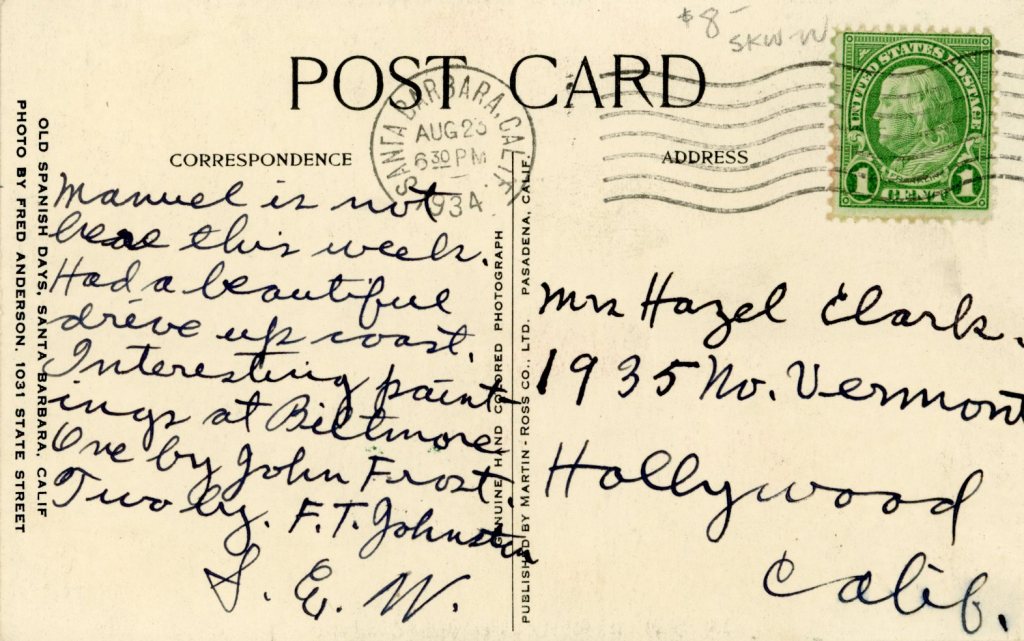 $8-
SKW
POST CARD
SANTA BARBARA, CALIF.
AUG 23
6 30 PM
1934
UNITED STATES POSTAGE
1 CENT 1
CORRESPONDENCE
ADDRESS
Manuel is not
here this week.
Had a beautiful
drive up coast.
Interesting paint-
ings at Biltmore
One by John Frost.
Two by. F.T. Johnston
S. E. W.
Mrs Hazel Clark.
1935 No. Vermont
Hollywood
Calif.
OLD SPANISH DAYS, SANTA BARBARA, CALIF
PHOTO BY FRED ANDERSON. 1031 STATE STREET
GENUINE HAND COLORED PHOTOGRAPH
PUBLISHED BY MARTIN-ROSS CO., LTD. PASADENA, CALIF.